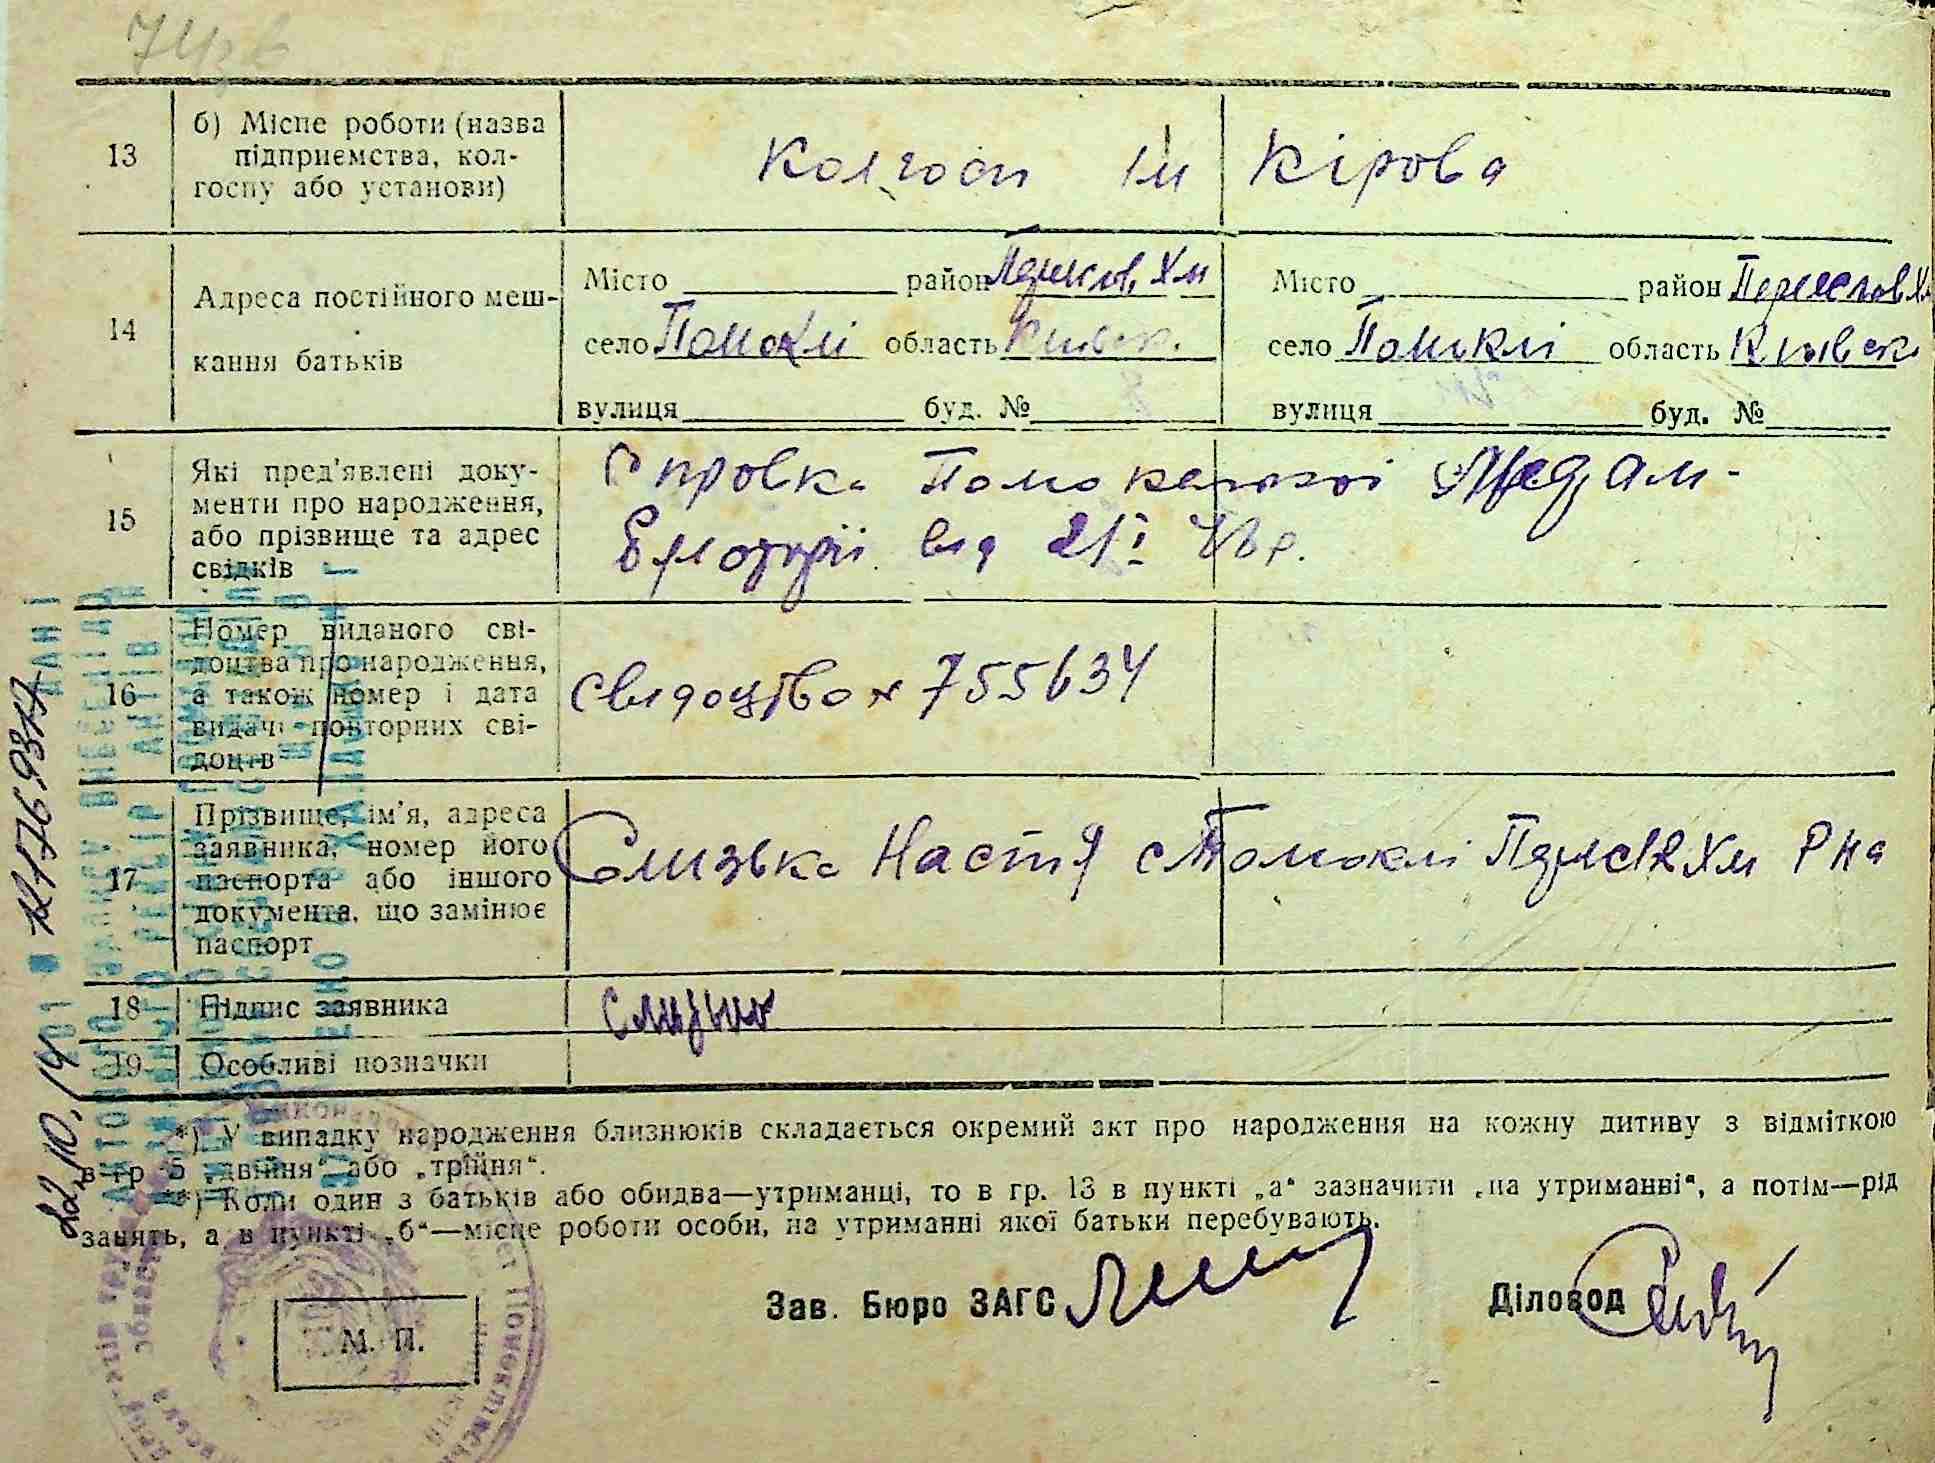 13 б) Місце роботи (назва
підприємства, кол-
госпу або установи)
Колгосп ім Кірова
14 Адреса постійного меш-
кання батьків
Місто район Переяслов Хм Місто район Переяслов Хм
село Помоклі область Київск. село Помоклі область Київск
вулиця буд. № вулиця буд. №
15 Які пред'явлені доку-
менти про народження,
або прізвище та адрес
свідків
Справка Помокельскої Медам-
булоторії від 21 р.
16 Номер виданого сві-
доцтва про народження,
а також номер і дата
видачі повторних сві-
доцтв
свидоцтво № 755634
17 Прізвище, ім'я, адреса
заявника, номер його
паспорта або іншого
документа, що замінює
паспорт
Слизька Настя с Помоклі Переясл Хм Р на
18 Підпис заявника
19 Особливі позначки
*) У випадку народження близнюків складається окремий акт про народження на кожну дитину з відміткою
в гр 5 „двійня“ або „трійня“.
**) Коли один з батьків або обидва—утриманці, то в гр. 13 в пункті „а“ зазначити „на утриманні“, а потім—рід
занять, а в пункті „б“—місце роботи особи, на утриманні якої батьки перебувають.
Зав. Бюро ЗАГС Діловод
М. П.